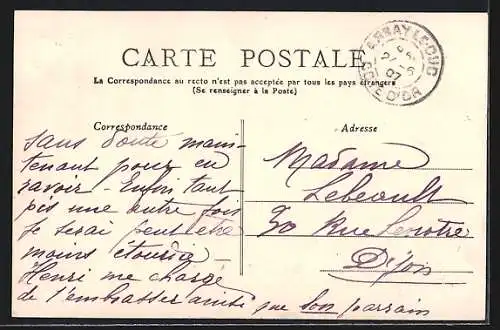 CARTE POSTALE
La Correspondance au recto n'est pas acceptée par tous les pays étrangers
(Se renseigner à la Poste)
ARNAY-LE-DUC
21 -6
07
COTE D'OR
Correspondance
Adresse
sans doute main-
tenant pour en
savoir - Enfin tant
pis une autre fois
je serai peut être
moins étourdie -
Henri me charge
de l'embrasser ainsi que son parrain
Madame
Lebeault
30 Rue Lenotre
Dijon